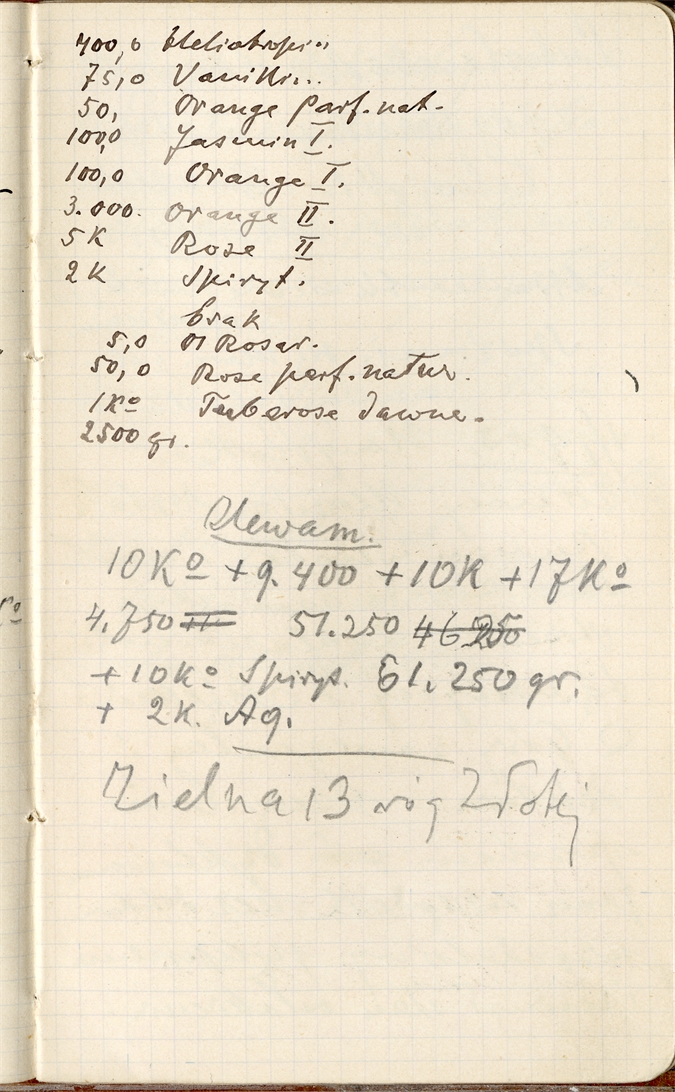 400,0 Heliotropin
75,0 Vanillin..
50, Orange parf. nat.
100,0 Jasmin I.
100,0 Orange I.
3.000. Orange II.
5 K Rose II
2 K Spiryt.
brak
5,0 Ol Rosar.
50,0 Rose parf. natur.
1 Ko Tuberose dawne.
2500 gr.
10 Ko + 9.400 + 10K + 17 Ko
4.750 51.250 46 250
+ 10 Ko Spiryt. 61.250 gr.
+ 2 K. Aq.
Zielna 13 róg Złotej